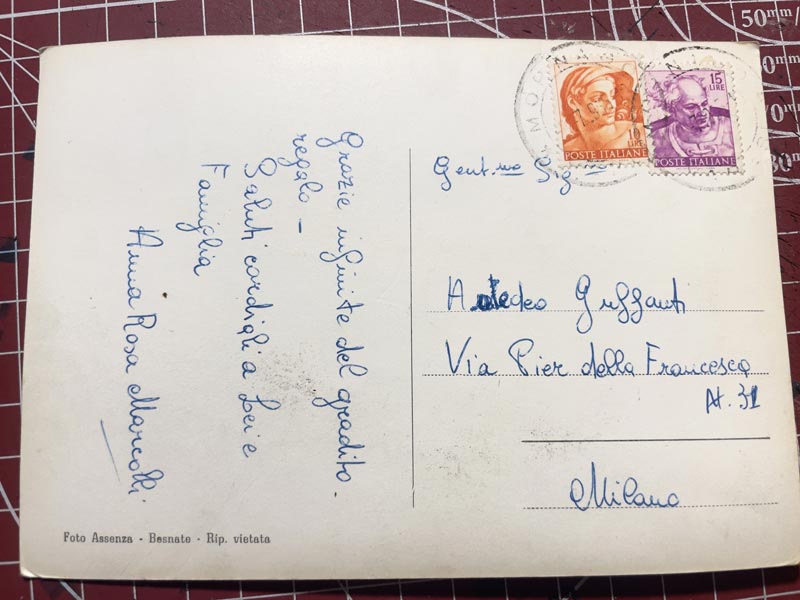 Grazie infinite del gradito
regalo –
Saluti cordiali a Lei e
Famiglia
Anna Rosa Marcolli
Foto Assenza - Besnate - Rip. vietata
10
LIRE
POSTE ITALIANE
15
LIRE
POSTE ITALIANE
Gent.mo Sig
Amedeo Guffanti
Via Pier della Francesca
N. 31
Milano
50mm